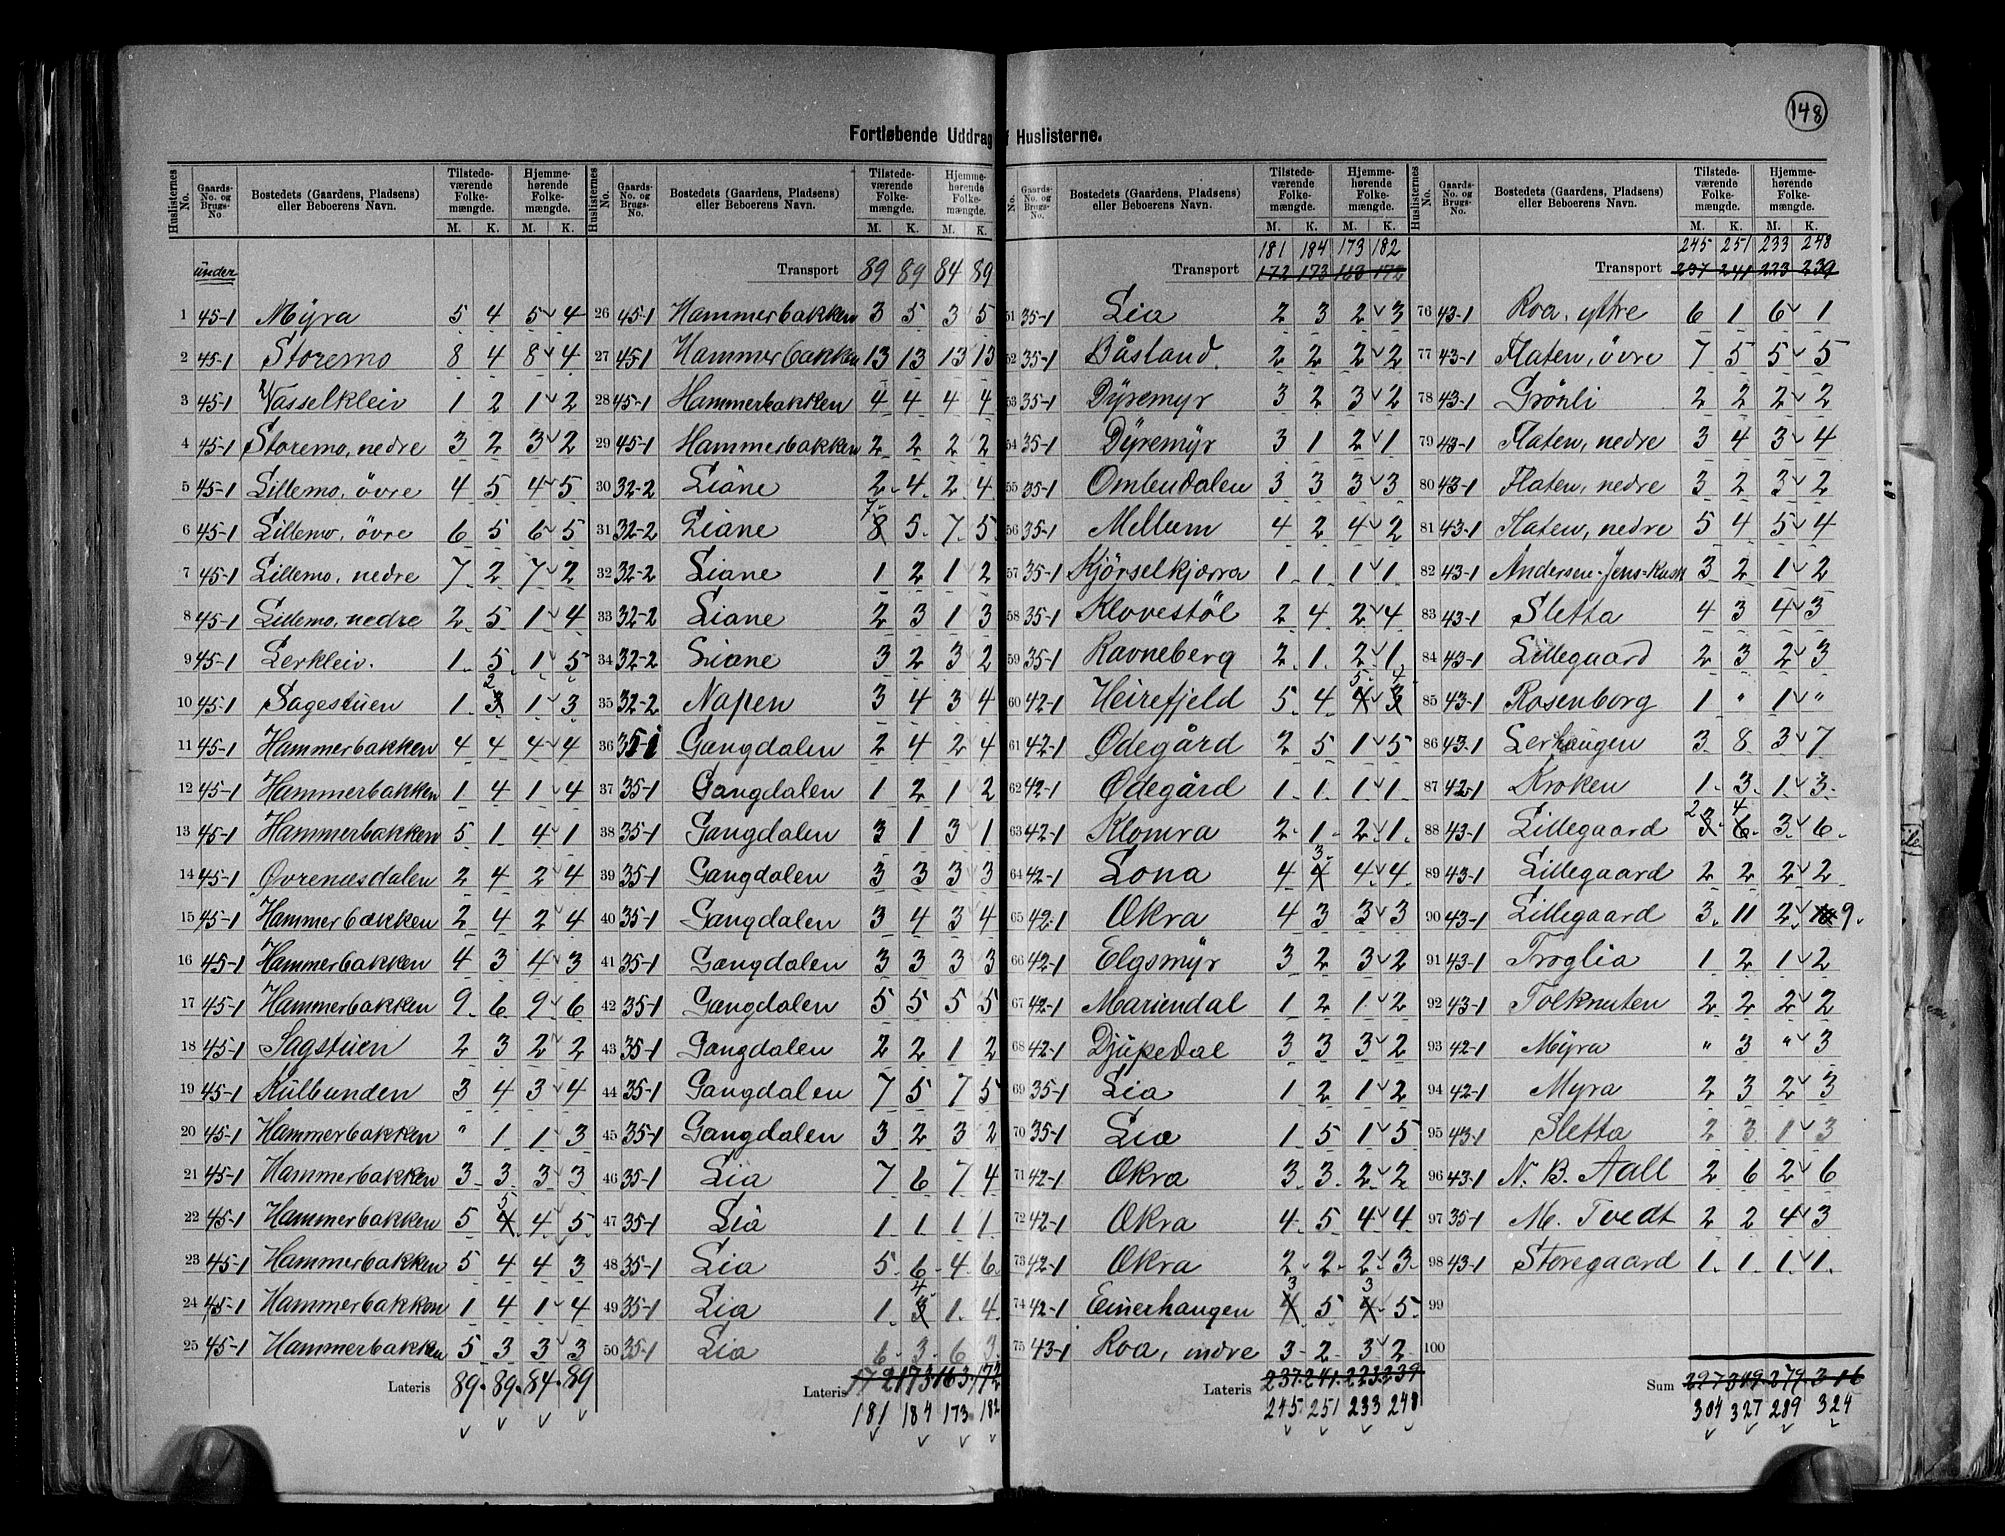 148
Fortløbende Uddrag f Huslisterne.
Huslisternes No. | Gaards-No. og Brugs-No | Bostedets (Gaardens, Pladsens) eller Beboerens Navn. | Tilstedeværende Folkemængde. M. K. | Hjemmehørende Folkemængde. M. K.
under
1 45-1 Myra 5 4 5 4
2 45-1 Storemo 8 4 8 4
3 45-1 Vasselkleiv 1 2 1 2
4 45-1 Storemo, nedre 3 2 3 2
5 45-1 Lillemo, övre 4 5 4 5
6 45-1 Lillemo, övre 6 5 6 5
7 45-1 Lillemo, nedre 7 2 7 2
8 45-1 Lillemo, nedre 2 5 1 4
9 45-1 Lerkleiv. 1 5 1 5
10 45-1 Sagestuen 1 2 3 1 3
11 45-1 Hammerbakken 4 4 4 4
12 45-1 Hammerbakken 1 4 1 4
13 45-1 Hammerbakken 5 1 4 1
14 45-1 Øvrenæsdalen 2 4 2 4
15 45-1 Hammerbakken 2 4 2 4
16 45-1 Hammerbakken 4 3 4 3
17 45-1 Hammerbakken 9 6 9 6
18 45-1 Sagstuen 2 3 2 2
19 45-1 Kulbunden 3 4 3 4
20 45-1 Hammerbakken " 1 1 3
21 45-1 Hammerbakken 3 3 3 3
22 45-1 Hammerbakken 5 5 4 4 5
23 45-1 Hammerbakken 5 4 4 3
24 45-1 Hammerbakken 1 4 1 4
25 45-1 Hammerbakken 5 3 3 3
Lateris 89 89 84 89
Huslisternes No. | Gaards-No. og Brugs-No. | Bostedets (Gaardens, Pladsens) eller Beboerens Navn. | Tilstedeværende Folkemængde. M. K. | Hjemmehørende Folkemængde. M. K.
Transport 89 89 84 89
26 45-1 Hammerbakken 3 5 3 5
27 45-1 Hammerbakken 13 13 13 13
28 45-1 Hammerbakken 4 4 4 4
29 45-1 Hammerbakken 2 2 2 2
30 32-2 Liane 2 4 2 4
31 32-2 Liane 7 8 5 7 5
32 32-2 Liane 1 2 1 2
33 32-2 Liane 2 3 1 3
34 32-2 Liane 3 2 3 2
35 32-2 Napen 3 4 3 4
36 35-1 Gangdalen 2 4 2 4
37 35-1 Gangdalen 1 2 1 2
38 35-1 Gangdalen 3 1 3 1
39 35-1 Gangdalen 3 3 3 3
40 35-1 Gangdalen 3 4 3 4
41 35-1 Gangdalen 3 3 3 3
42 35-1 Gangdalen 5 5 5 5
43 35-1 Gangdalen 2 2 1 2
44 35-1 Gangdalen 7 5 7 5
45 35-1 Gangdalen 3 2 3 2
46 35-1 Lia 7 6 7 4
47 35-1 Lia 1 1 1 1
48 35-1 Lia 5 6 4 6
49 35-1 Lia 1 4 3 1 4
50 35-1 Lia 6 3 6 3
Lateris 172 173 163 172
181 184 173 182
No. | Gaards-No. og Brugs-No. | Bostedets (Gaardens, Pladsens) eller Beboerens Navn. | Tilstedeværende Folkemængde. M. K. | Hjemmehørende Folkemængde. M. K.
181 184 173 182
Transport 172 173 163 172
51 35-1 Lia 2 3 2 3
52 35-1 Båsland. 2 2 2 2
53 35-1 Dyremyr 3 2 3 2
54 35-1 Dyremyr 3 1 2 1
55 35-1 Ombudalen 3 3 3 3
56 35-1 Mellum 4 2 4 2
57 35-1 Kjörselkjærra 1 1 1 1
58 35-1 Klovestöl 2 4 2 4
59 35-1 Ravneberg 2 1 2 1
60 42-1 Heirefjeld 5 4 5 4 4 3
61 42-1 Ødegård 2 5 1 5
62 42-1 Ødegård 1 1 1 1
63 42-1 Klomra 2 1 2 1
64 42-1 Lona 4 3 4 4 4
65 42-1 Økra 4 3 3 3
66 42-1 Elgsmyr 3 2 3 2
67 42-1 Mariendal 1 2 1 2
68 42-1 Djupedal 3 3 3 2
69 35-1 Lia 1 2 1 2
70 35-1 Lia 1 5 1 5
71 42-1 Økra 3 3 2 2
72 42-1 Økra 4 5 4 4
73 42-1 Økra 2 2 2 3
74 42-1 Einerhaugen 3 4 5 3 4 5
75 43-1 Roa, indre 3 2 3 2
Lateris 237 241 223 239
245 251 233 248
Huslisternes No. | Gaards-No. og Brugs-No. | Bostedets (Gaardens, Pladsens) eller Beboerens Navn. | Tilstedeværende Folkemængde. M. K. | Hjemmehørende Folkemængde. M. K.
245 251 233 248
Transport 237 241 223 239
76 43-1 Roa, ytre 6 1 6 1
77 43-1 Flaten, övre 7 5 5 5
78 43-1 Grönli 2 2 2 2
79 43-1 Flaten, nedre 3 4 3 4
80 43-1 Flaten, nedre 3 2 3 2
81 43-1 Flaten, nedre 5 4 5 4
82 43-1 Andersen, Jens 3 2 1 2
83 43-1 Sletta 4 3 4 3
84 43-1 Lillegaard 2 3 2 3
85 43-1 Rosenborg 1 " 1 "
86 43-1 Lerhaugen 3 8 3 7
87 42-1 Kroken 1 3 1 3
88 43-1 Lillegaard 2 3 4 6 3 6
89 43-1 Lillegaard 2 2 2 2
90 43-1 Lillegaard 3 11 2 10 9
91 43-1 Troglia 1 2 1 2
92 43-1 Tolknuten 2 2 2 2
93 42-1 Myra " 3 " 3
94 42-1 Myra 2 3 2 3
95 43-1 Sletta 2 3 1 3
96 43-1 N. B. Aall 2 6 2 6
97 35-1 M. Tvedt 2 2 4 3
98 43-1 Storegaard 1 1 1 1
99
100
Sum 297 319 279 316
304 327 289 324